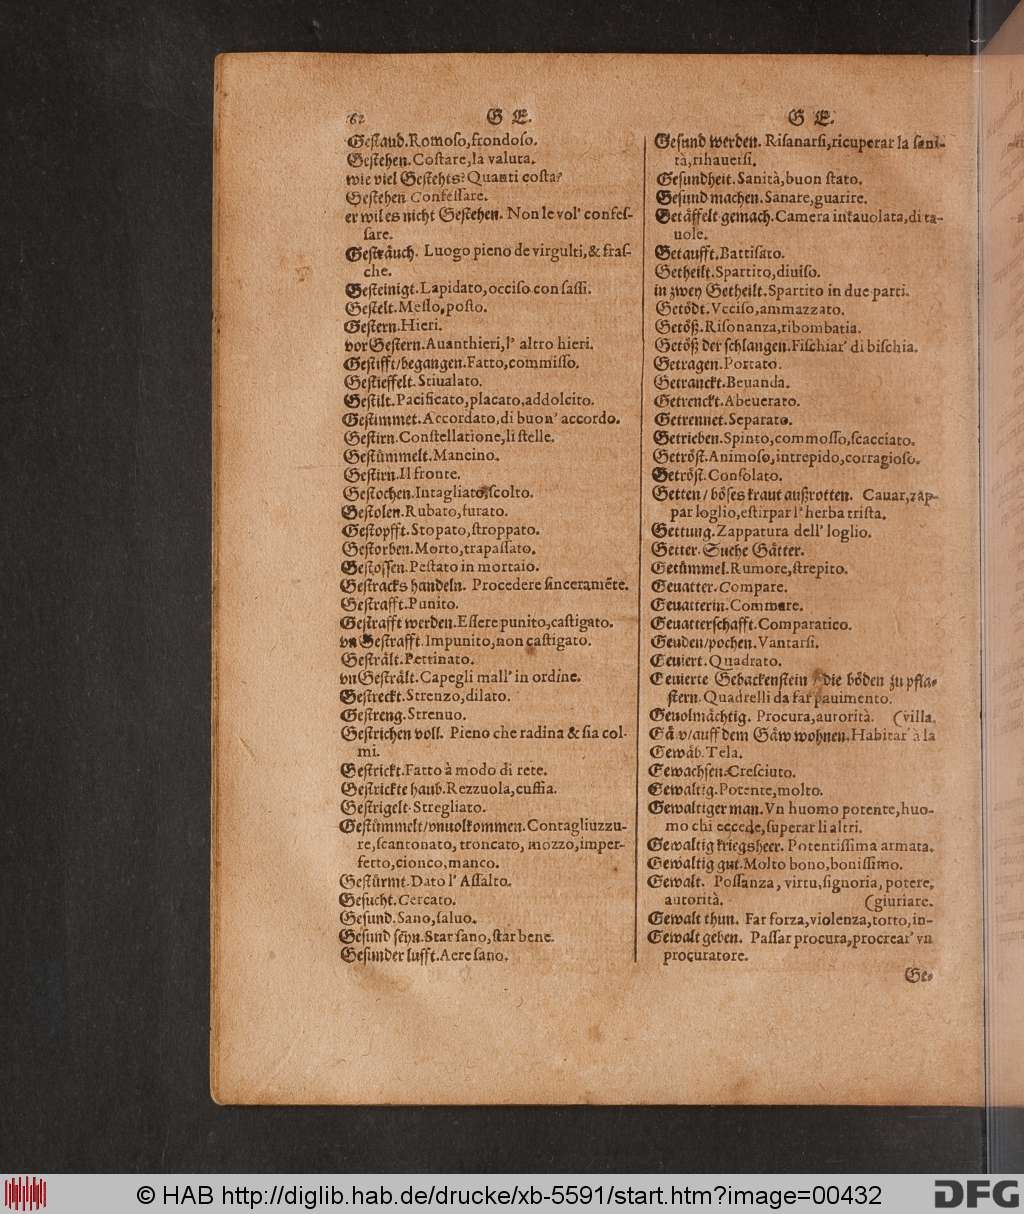 62
G E.
Gestaud. Romoſo, frondoſo.
Gestehen. Coſtare, la valuta.
wie viel Gestehts? Quanti coſta?
Gestehen Confeſſare.
er wil es nicht Gestehen. Non le vol' confeſ-
ſare.
Gestråuch. Luogo pieno de virgulti, & fraſ-
che.
Gesteinigt. Lapidato, occiſo con ſaſſi.
Gestelt. Meſſo, poſto.
Gestern. Hieri.
vor Gestern. Auanthieri, l' altro hieri.
Gestifft/begangen. Fatto, commiſſo.
Gestieffelt. Stiualato.
Gestilt. Pacificato, placato, addolcito.
Gestimmet. Accordato, di buon' accordo.
Gestirn. Conſtellatione, li ſtelle.
Gestůmmelt. Mancino.
Gestirn. Il fronte.
Gestochen. Intagliato, ſcolto.
Gestolen. Rubato, furato.
Gestopfft. Stopato, ſtroppato.
Gestorben. Morto, trapaſſato.
Gestossen. Peſtato in mortaio.
Gestracks handeln. Procedere ſinceramẽte.
Gestrafft. Punito.
Gestrafft werden. Eſſere punito, caſtigato.
vn Gestrafft. Impunito, non caſtigato.
Gestrålt. Pettinato.
vn Gestrålt. Capegli mall' in ordine.
Gestreckt. Strenzo, dilato.
Gestreng. Strenuo.
Gestrichen voll. Pieno che radina & ſia col-
mi.
Gestrickt. Fatto à modo di rete.
Gestrickte haub. Rezzuola, cuffia.
Gestrigelt. Stregliato.
Gestůmmelt/vnuolkommen. Contagliuzzu-
re, ſcantonato, troncato, mozzo, imper-
fetto, cionco, manco.
Gestůrmt. Dato l' Aſſalto.
Gesucht. Cercato.
Gesund. Sano, ſaluo.
Gesund sẽyn. Star ſano, ſtar bene.
Gesunder lufft. Aere ſano.
G E.
Gesund werden. Riſanarſi, ricuperar la ſani-
tà, rihauerſi.
Gesundheit. Sanità, buon ſtato.
Gesund machen. Sanare, guarire.
Getåffelt gemach. Camera intauolata, di ta-
uole.
Getaufft. Battiſato.
Getheilt. Spartito, diuiſo.
in zwey Getheilt. Spartito in due parti.
Getödt. Vcciſo, ammazzato.
Getöß. Riſonanza, ribombatia.
Getöß der schlangen. Fiſchiar' di biſchia.
Getragen. Portato.
Getranckt. Beuanda.
Getrenckt. Abeuerato.
Getrennet. Separato.
Getrieben. Spinto, commoſſo, ſcacciato.
Getröst. Animoſo, intrepido, corragioſo.
Getröst. Conſolato.
Getten/ böses kraut außrotten. Cauar, zap-
par loglio, eſtirpar l' herba triſta.
Gettung. Zappatura dell' loglio.
Getter. Suche Gåtter.
Getůmmel. Rumore, ſtrepito.
Geuatter. Compare.
Geuatterin. Commare.
Geuatterschafft. Comparatico.
Geuden/pochen. Vantarſi.
Geuiert. Quadrato.
Geuierte Gebackenstein / die böden zu pfla-
stern. Quadrelli da far pauimento.
Geuolmåchtig. Procura, autorità. (villa.
Gå v/auff dem Gåw wohnen. Habitar' à la
Gewåb. Tela.
Gewachsen. Creſciuto.
Gewaltig. Potente, molto.
Gewaltiger man. Vn huomo potente, huo-
mo chi eccede, ſuperar li altri.
Gewaltig kriegsheer. Potentiſſima armata.
Gewaltig gut. Molto bono, boniſſimo.
Gewalt. Poſſanza, virtu, ſignoria, potere,
autorità. (giuriare.
Gewalt thun. Far forza, violenza, torto, in-
Gewalt geben. Paſſar procura, procrear' vn
procuratore.
Ge-
© HAB http://diglib.hab.de/drucke/xb-5591/start.htm?image=00432
DFG